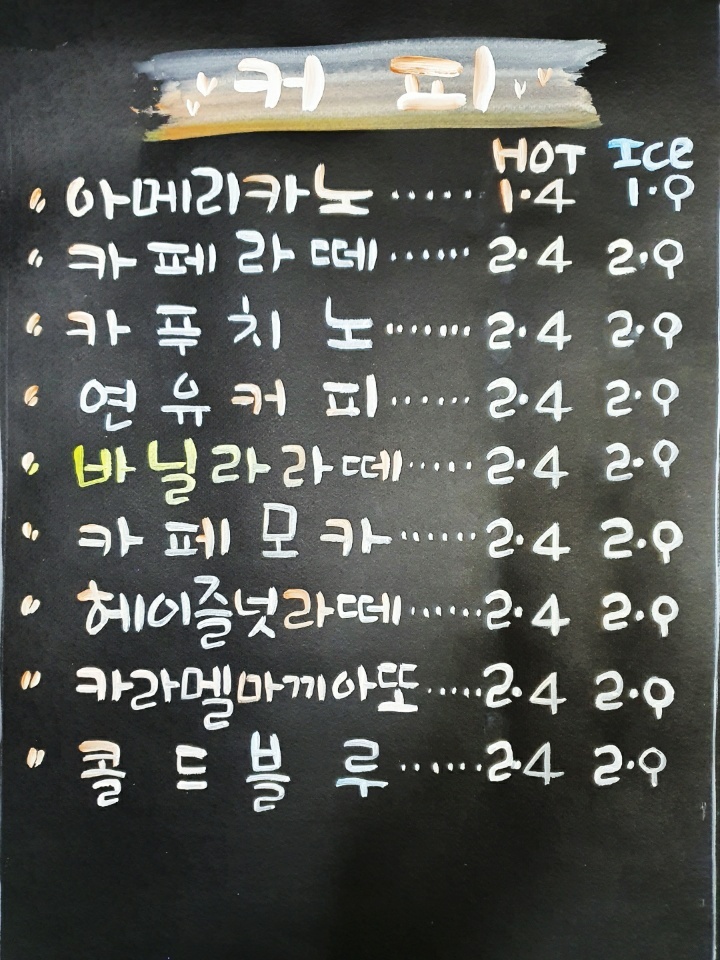 커 피
HOT ICe
아메리카노 ...... 1.4 1.9
카 페 라 떼 ...... 2.4 2.9
카 푸 치 노 ...... 2.4 2.9
연 유 커 피 ...... 2.4 2.9
바 닐 라 라 떼 ..... 2.4 2.9
카 페 모 카 ...... 2.4 2.9
헤이즐넛라떼 ...... 2.4 2.9
카라멜마끼아또 ..... 2.4 2.9
콜 드 블 루 ...... 2.4 2.9